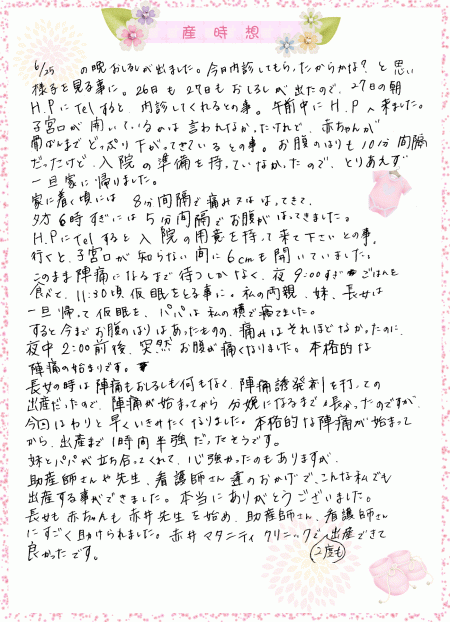 産時想
6/25 の晩おしるしが出ました。今日内診してもらったからかな？と思い
様子を見る事に。26日も27日もおしるしが出たので、27日の朝
H.PにTelすると、内診してくれるとの事。午前中にH.Pへ来ました。
子宮口が開いているのは言われなかったけれど、赤ちゃんが
骨ばんまでどっぷり下がってきているとの事。お腹のはりも10分間隔
だったけど、入院の準備を持っていなかったので、とりあえず
一旦家に帰りました。
家に着く頃には 8分間隔で痛みはってきて、
夕方6時すぎには5分間隔でお腹がはってきました。
H.PにTelすると入院の用意を持って来て下さいとの事。
行くと、子宮口が知らない間に6cmも開いていました。
このまま陣痛になるまで待つしかなく、夜9:00すぎごはんを
食べて、11:30頃仮眠をとる事に。私の両親、妹、長女は
一旦帰って仮眠を、パパは私の横で寝てました。
すると今までお腹のはりはあったものの、痛みはそれほどなかったのに、
夜中2:00前後、突然お腹が痛くなりました。本格的な
陣痛の始まりです。
長女の時は陣痛もおしるしも何もなく、陣痛誘発剤を打っての
出産だったので、陣痛が始まってから分娩になるまで長かったのですが、
今回はわりと早くいきみたくなりました。本格的な陣痛が始まって
から、出産まで1時間半強だったそうです。
妹とパパが立ち合ってくれて、心強かったのもありますが、
助産師さんや先生、看護師さん達のおかげで、こんな私でも
出産する事ができました。本当にありがとうございました。
長女も赤ちゃんも赤井先生を始め、助産師さん、看護師さん
にすごく助けられました。赤井マタニティクリニックで(2度も)出産できて
良かったです。